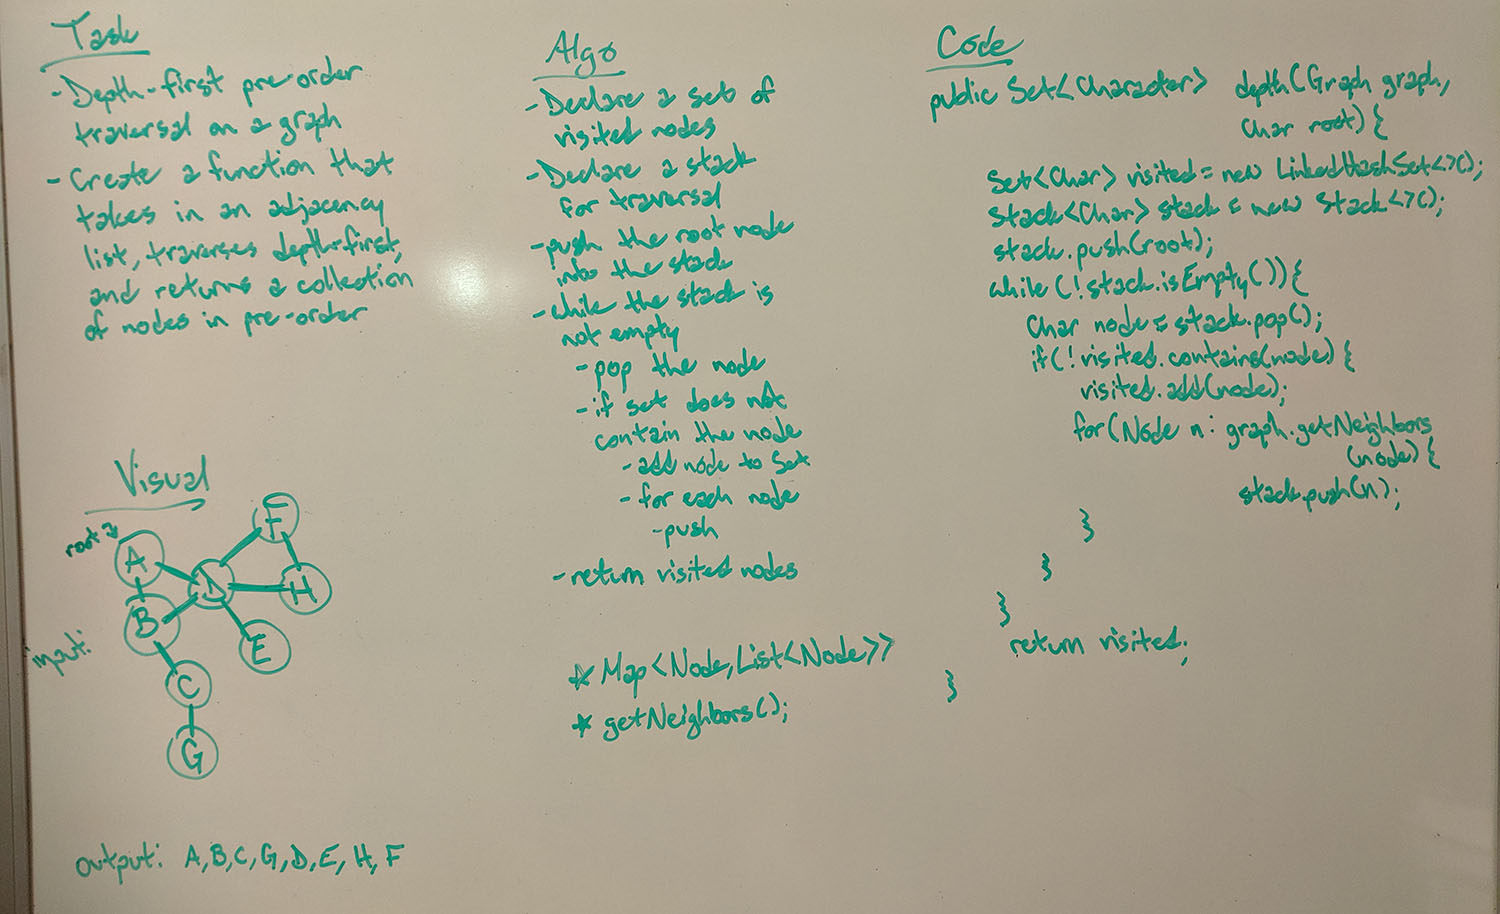 Task
- Depth-first pre-order
traversal on a graph
- Create a function that
takes in an adjacency
list, traverses depth-first,
and returns a collection
of nodes in pre-order
Visual
root →
A
B
C
G
D
E
F
H
input:
output: A, B, C, G, D, E, H, F
Algo
- Declare a set of
visited nodes
- Declare a stack
for traversal
- push the root node
into the stack
- while the stack is
not empty
- pop the node
- if set does not
contain the node
- add node to Set
- for each node
- push
- return visited nodes
* Map<Node, List<Node>>
* getNeighbors();
Code
public Set<Character> depth(Graph graph,
char root) {
Set<Char> visited = new LinkedHashSet<>();
Stack<Char> stack = new Stack<>();
stack.push(root);
while (!stack.isEmpty()) {
Char node = stack.pop();
if(!visited.contains(node) {
visited.add(node);
for(Node n : graph.getNeighbors
(node) {
stack.push(n);
}
}
}
return visited;
}